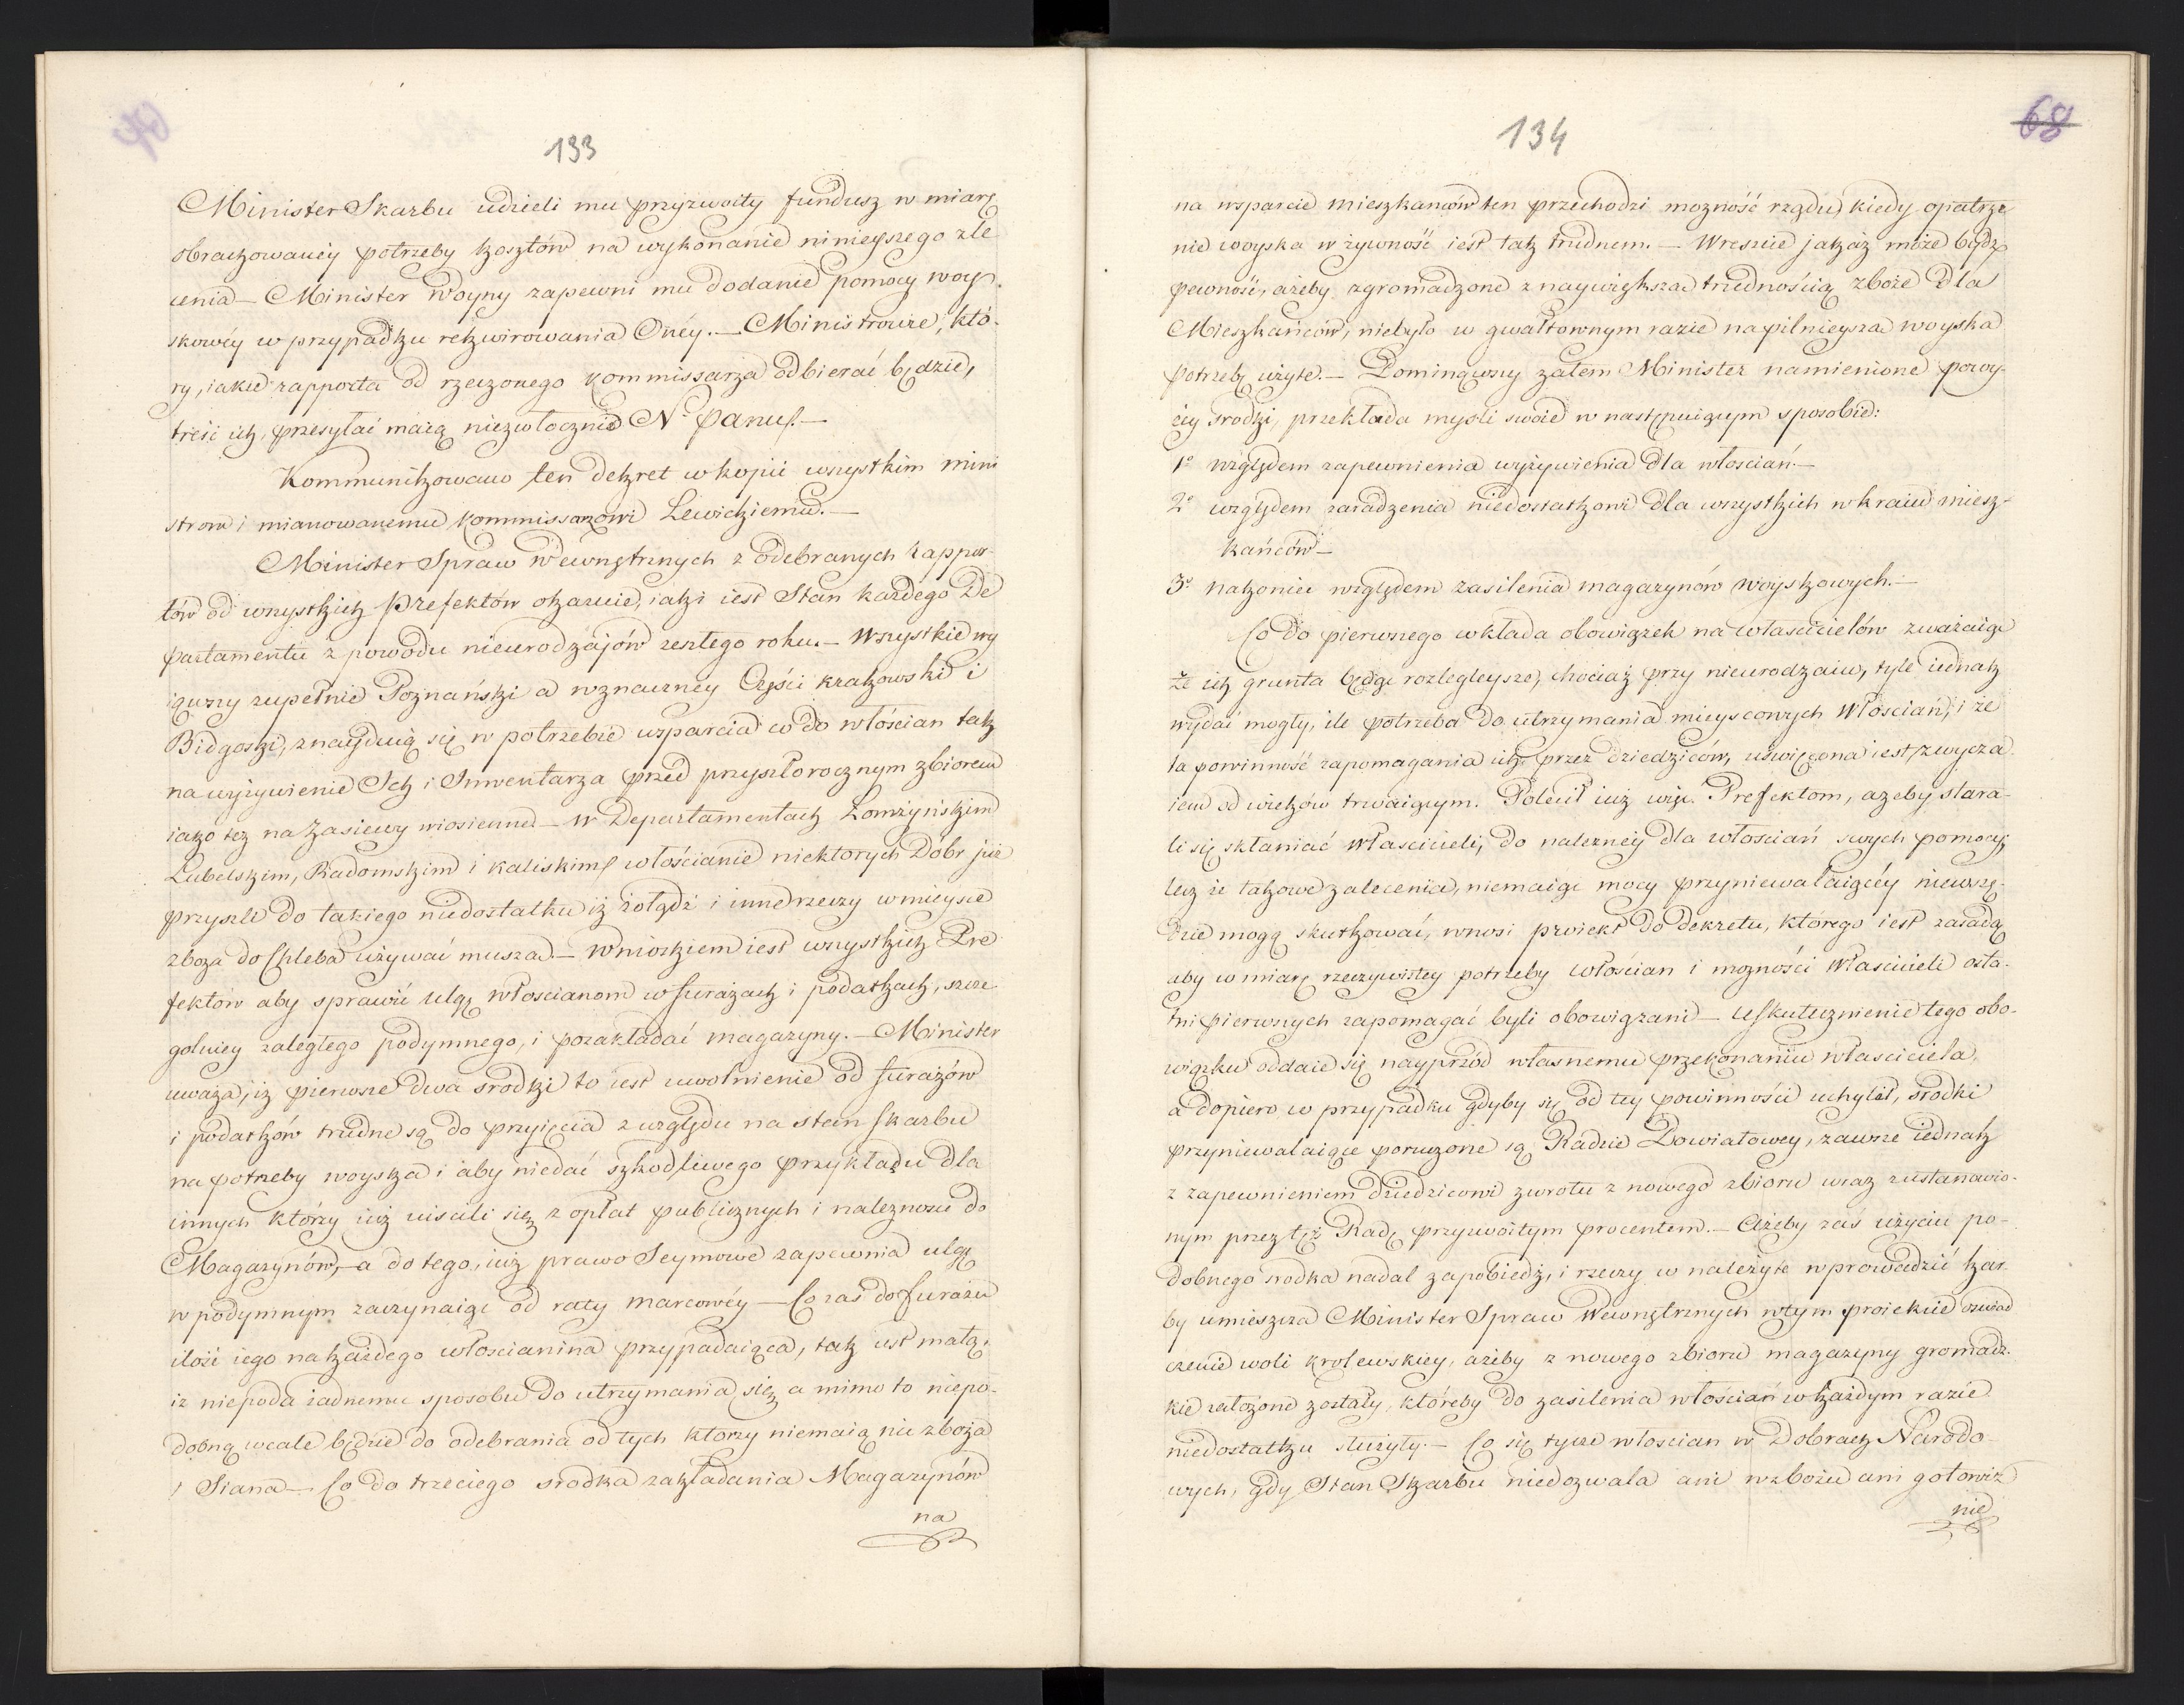 133
Minister Skarbu udzieli mu przyzwoity fundusz w miarę
obrachowanéy potrzeby kosztów na wykonanie ninieyszego zle
cenia — Minister Woyny zapewni mu dodanie pomocy woy.
skowéy w przypadku rekwirowania Onéy. — Ministrowie, któ-
rzy, iakie rapporta od rzeczonego kommissarza odbierać będzie,
treść ich, przesyłać maią niezwłocznie N. Panu. —
Kommunikowano ten dekret w kopii wszystkim mini
strom i mianowanemu kommissarzowi Lewickiemu. —
Minister Spraw Wewnętrznych z odebranych rappor-
tów od wszystkich Prefektów okazuie, iaki iest Stan każdego De
partamentu z powodu nieurodzajów zeszłego roku. — Wszystkie wy
iąwszy zupełnie Poznański a wznaczney Części krakowski i
Bidgoski, znayduią się w potrzebie wsparcia co do włościan tak
na wyżywienie Ich i Inwentarza przed przyszłorocznym zbiorem
iako też na Zasiewy wiosienne — w Departamentach Łomżyńskim
Lubelskim, Radomskim i kaliskim włościanie niektorych Dóbr już
przyszli do takiego niedostatku iż żołądź i inne rzeczy w mieysce
zboża do Chleba używać muszą. — Wnioskiem iest wszystkich Pre
fektów aby sprawić ulgę włościanom w furażach i podatkach, szcze
golniey zaległego podymnego, i pozakładać magazyny. — Minister
uważa, iż pierwsze dwa srodki to iest uwolnienie od furażów
i podatków trudne są do przyięcia z względu na stan Skarbu
na potrzeby woyska i aby niedać szkodliwego przykładu dla
innych którzy iuż uiscili się z opłat publicznych i należnosci do
Magazynów, — a do tego, iuż prawo Seymowe zapewnia ulgę
w podymnym zaczynaiąc od raty marcowéy — Co zaś do furażu
ilość iego na każdego włoscianina przypadaiąca, tak iest małą,
iż niepoda żadnemu sposobu do utrzymania się, a mimo to niepo-
dobną wcale będzie do odebrania od tych którzy niemaią nic zboża
i Siana — Co do trzeciego srodka zakładania Magazynów
na
134
68
na wsparcie mieszkańców ten przechodzi możność rządu, kiedy opatrze
nie woyska w żywność iest tak trudnem. — Wreszcie jakaż może bydz
pewność, ażeby zgromadzone z naywiększą trudnością zboże dla
Mieszkańców, niebyło w gwałtownym razie na pilnieyszą woyska
potrzebę użyte. — Pominąwszy zatem Minister namienione powy-
żéy srodki, przekłada mysli swoie w nastepuiącym sposobie:
1o względem zapewnienia wyżywienia dla włoscian. —
2o względem zaradzenia niedostatkowi dla wszystkich w kraiu miesz-
kańców —
3o nakoniec względem zasilenia magazynów woyskowych. —
Co do pierwszego wkłada obowiązek na własciciełów zważaiąc
że ich grunta będąc rozległeysze, chociaż przy nieurodzaiu, tyle iednak
wydać mogły, ile potrzeba do utrzymania mieyscowych Włoscian, i że
ta powinność zapomagania ich przez dziedziców, uświęcona iest zwycza
iem od wieków trwaiącym. Polecił iuż więc Prefektom, ażeby stara-
li się skłaniać własciceli, do należnéy dla włoscian swych pomocy,
lecz że takowe zalecenia, niemaiąc mocy przyniewalaiącéy niewszę-
dzie mogą skutkować, wnosi proiekt do dekretu, którego iest zasadą
aby w miarę rzeczywistey potrzeby włoscian i możności Włascicieli osta-
tni pierwszych zapomagać byli obowiązani — Uskutecznienie tego obo-
wiązku oddaie się nayprzód własnemu przekonaniu własciciela,
a dopiero w przypadku gdyby się od tey powinności uchylał, srodki
przyniewalaiące poruczone są Radzie Powiatowey, zawsze iednak
z zapewnieniem dziedzicowi zwrotu z nowego zbioru wraz z ustanowio-
nym przez tęż Radę przyzwoitym procentem. — Ażeby zaś użyciu po-
dobnego srodka nadal zapobiedz, i rzeczy w należyte wprowadzić kar
by umieszcza Minister Spraw Wewnętrznych w tym proiekcie oswiad
czenie woli krolewskiey, ażeby z nowego zbioru magazyny gromadz-
kie założone zostały, któreby do zasilenia włoscian w każdym razie
niedostatku służyły. — Co się tycze włoscian w Dobrach Narodo-
wych, gdy Stan Skarbu niedozwala ani w zbożu ani gotowiz
nie